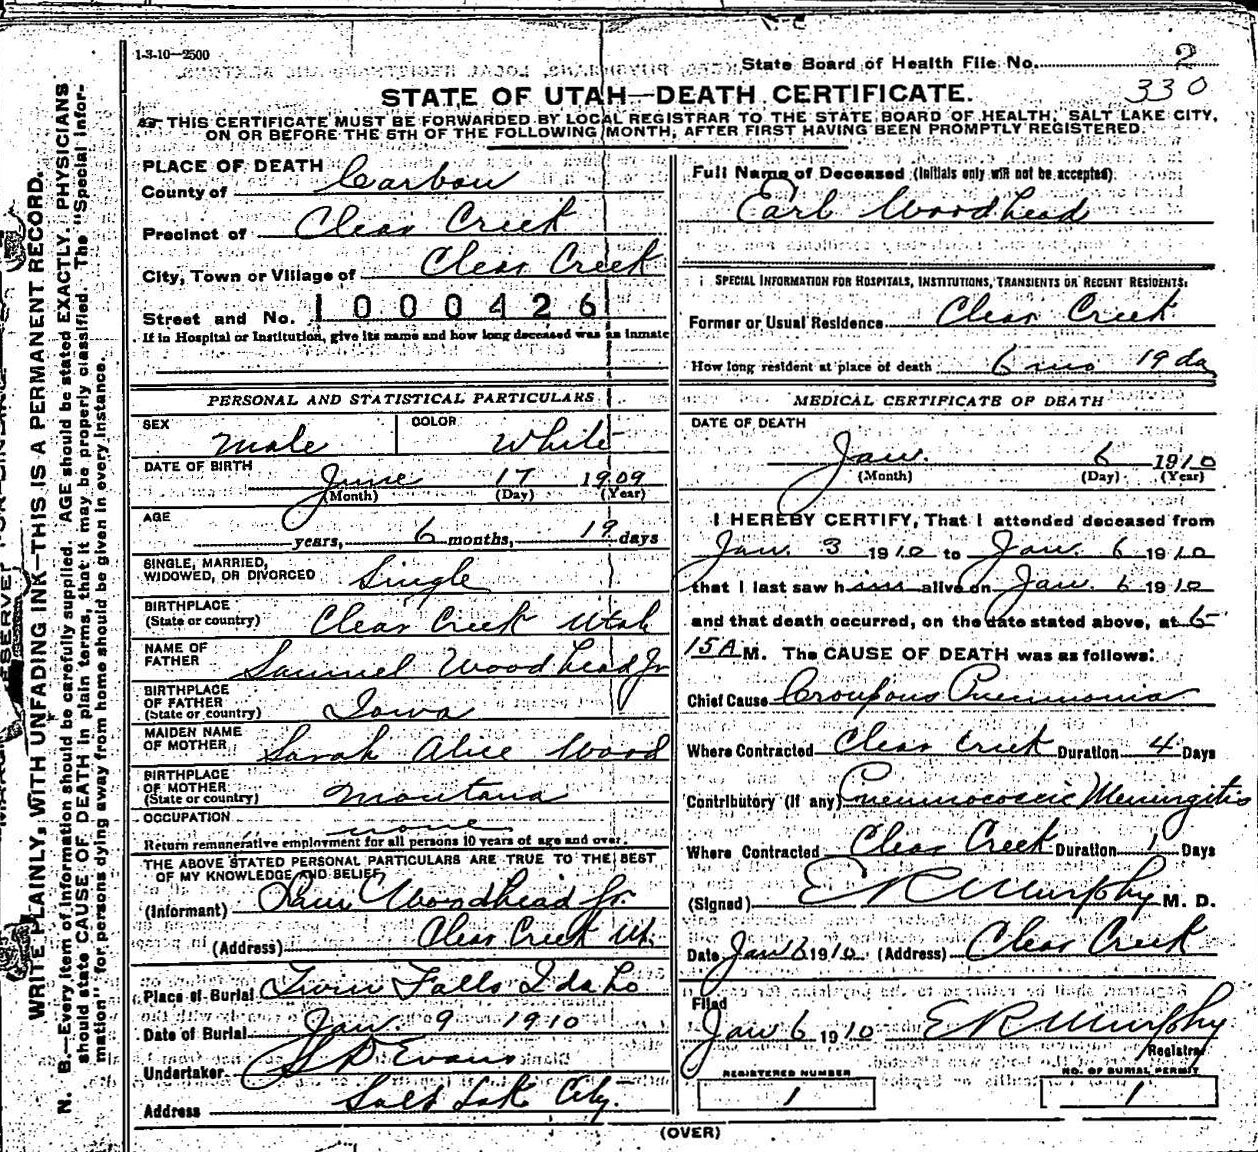 1-3-10—2500
State Board of Health File No. 2
330
STATE OF UTAH—DEATH CERTIFICATE.
THIS CERTIFICATE MUST BE FORWARDED BY LOCAL REGISTRAR TO THE STATE BOARD OF HEALTH, SALT LAKE CITY,
ON OR BEFORE THE 5TH OF THE FOLLOWING MONTH, AFTER FIRST HAVING BEEN PROMPTLY REGISTERED.
WRITE PLAINLY, WITH UNFADING INK—THIS IS A PERMANENT RECORD.
N. B.—Every item of information should be carefully supplied. AGE should be stated EXACTLY. PHYSICIANS
should state CAUSE OF DEATH in plain terms, that it may be properly classified. The "Special Infor-
mation" for persons dying away from home should be given in every instance.
PLACE OF DEATH
County of Carbon
Precinct of Clear Creek
City, Town or Village of Clear Creek
Street and No. 1000426
If in Hospital or Institution, give its name and how long deceased was an inmate
PERSONAL AND STATISTICAL PARTICULARS
SEX Male COLOR White
DATE OF BIRTH June 17 1909
(Month) (Day) (Year)
AGE
years, 6 months, 19 days
SINGLE, MARRIED,
WIDOWED, OR DIVORCED Single
BIRTHPLACE
(State or country) Clear Creek Utah
NAME OF
FATHER Samuel Woodhead Jr
BIRTHPLACE
OF FATHER
(State or country) Iowa
MAIDEN NAME
OF MOTHER Sarah Alice Wood
BIRTHPLACE
OF MOTHER
(State or country) Montana
OCCUPATION none
Return remunerative employment for all persons 10 years of age and over.
THE ABOVE STATED PERSONAL PARTICULARS ARE TRUE TO THE BEST
OF MY KNOWLEDGE AND BELIEF
(Informant) Saml Woodhead Jr.
(Address) Clear Creek Ut.
Place of Burial Twin Falls Idaho
Date of Burial Jan. 9 1910
Undertaker S D Evans
Address Salt Lake City.
Full Name of Deceased (Initials only will not be accepted)
Earl Woodhead
SPECIAL INFORMATION FOR HOSPITALS, INSTITUTIONS, TRANSIENTS OR RECENT RESIDENTS:
Former or Usual Residence Clear Creek
How long resident at place of death 6 mo 19 da
MEDICAL CERTIFICATE OF DEATH
DATE OF DEATH
Jan. 6 1910
(Month) (Day) (Year)
I HEREBY CERTIFY, That I attended deceased from
Jan. 3 1910 to Jan. 6 1910
that I last saw him alive on Jan. 6 1910
and that death occurred, on the date stated above, at 6
15A M. The CAUSE OF DEATH was as follows:
Chief Cause Croupous Pneumonia
Where Contracted Clear Creek Duration 4 Days
Contributory (if any) Pneumococcic Meningitis
Where Contracted Clear Creek Duration 1 Days
(Signed) E R Murphy M. D.
Date Jan 6 1910 (Address) Clear Creek
Filed
Jan 6 1910 E R Murphy
Registrar
REGISTERED NUMBER NO. OF BURIAL PERMIT
1 1
(OVER)